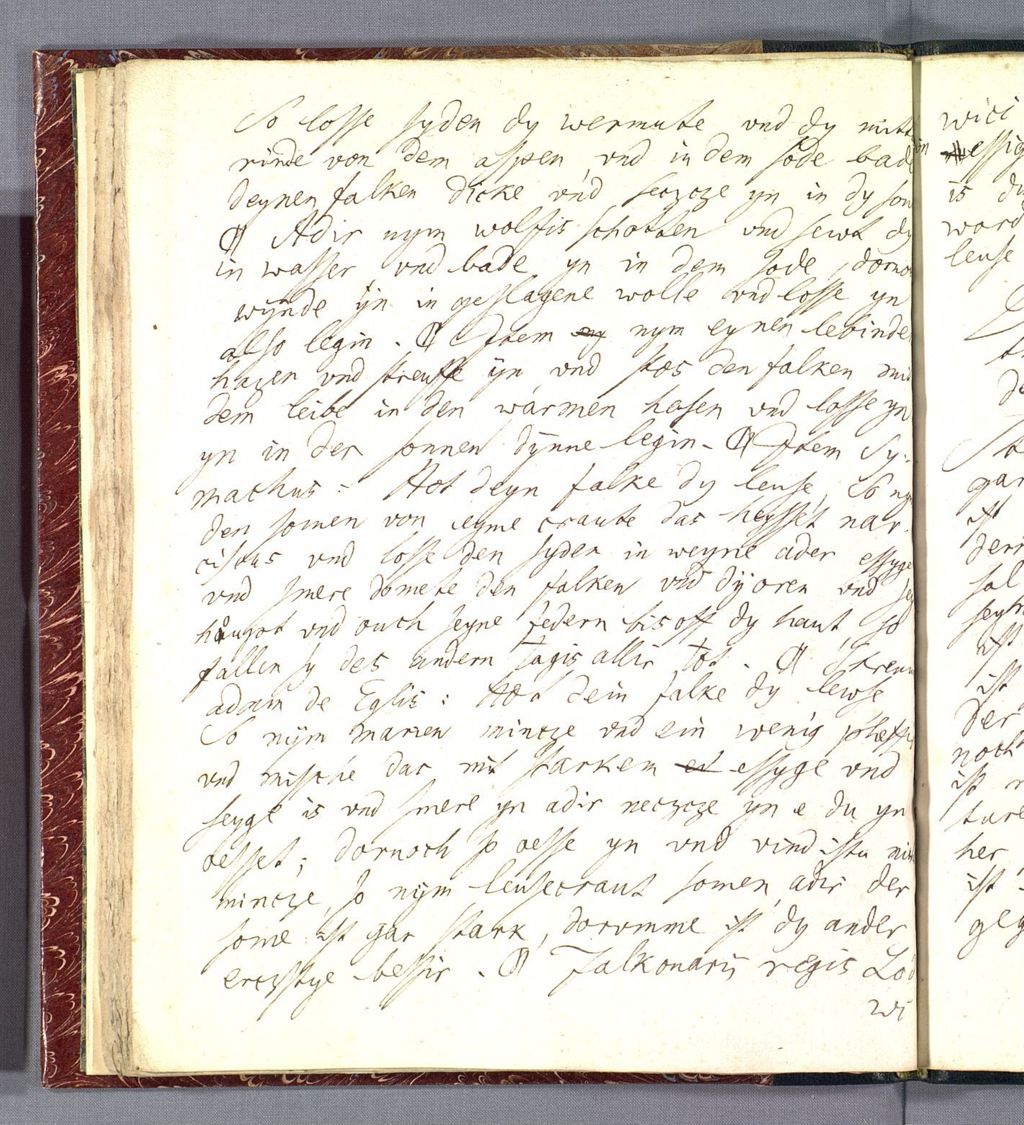 So losse syden dy wermute vnd dy mitt
rinde von dem aspen vnd in dem sode bade
deynen falken dicke vnd seczcze yn in dy son
¶ Adir nym wolfis schotten vnd sewt dy
in wasser vnd bade yn in dem sode, dorno
wynde ÿn in geslagene wolle vnd losse yn
also legin. ¶ Item nym eynen lebinde
hazen vnd streuffe ÿn vnd stos den falken mit
dem leibe in den warmen hasen vnd losse yn
yn in der sonnen dÿnne legin. ¶ Item Sy-
machus: Hot deyn falke dy leuse, So nym
den somen von eyme craute das heysset nar-
cisous vnd losse den syden in weyne ader essyge
vnd smere domete den falken vnd dÿ oren vnd sey
houbt vnd ouch seyne federn bis off dy haut, so
fallen sy des andern tagis allir tot. ¶
adam de Eglis: Hot dein falke dy lewse
So nÿm marien mincze vnd ein wenig pfeffir
vnd mische das mit starkem essyge vnd
seyge is vnd smere yn adir neczcze yn e du yn
oesset; dornoch so oesse yn vnd vindistu nicht
mincze, so nÿm leusecraut somen, adir der
some ist gar stark, dorumme ist dy ander
ercztye bessir. ¶ Falkonarÿ regis Lod
wi
wici
in essig
is du
word
leuse
de
gar
ist
deri
sal
seyn
ist
ist
der
noch
ist
ture
her
ist
geg